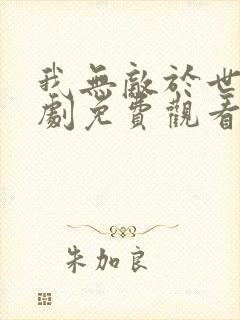 我無敵於世
劇免費觀看
朱加良